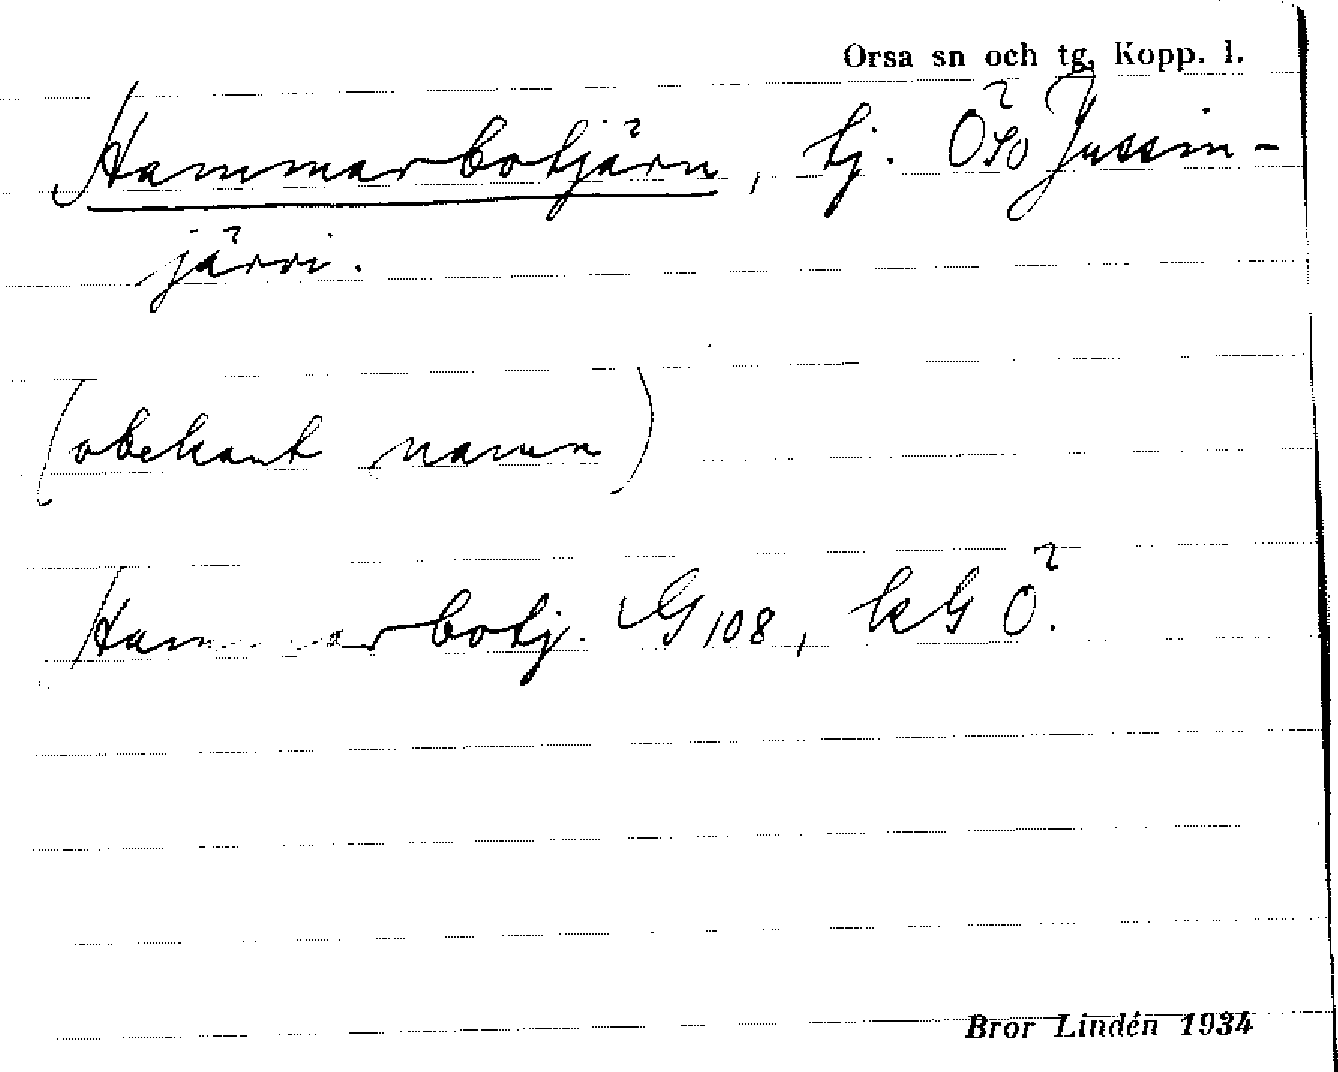 Orsa sn och tg, Kopp. l.
Hammarbotjärn, tj. ÖSO Jussin-
järvi.
(obekant namn)
Hammarbotj. G 108, kG Ö.
Bror Lindén 1934